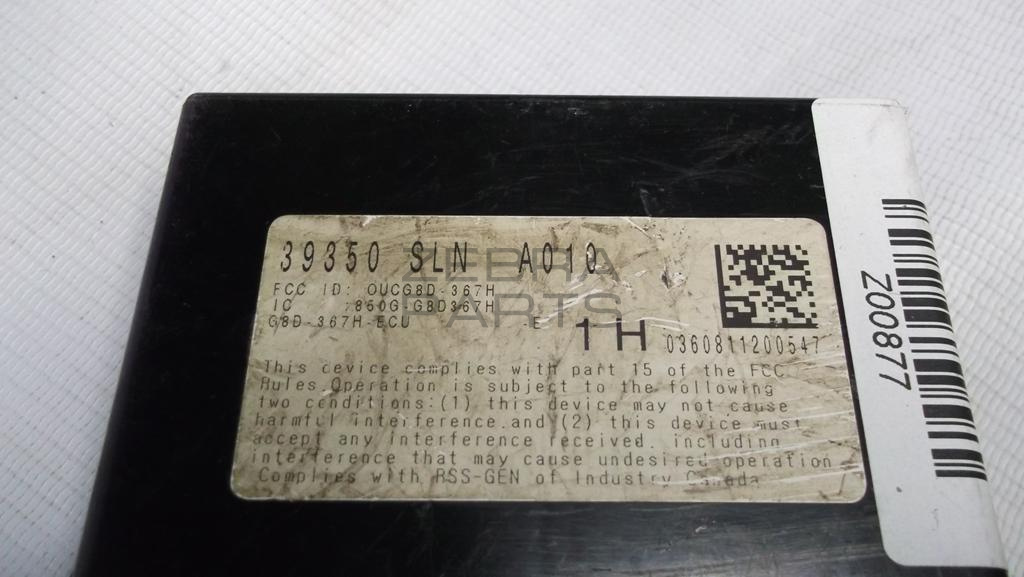 39350 SLN A010
FCC ID: OUCG8D-367H
IC :850G-G8D367H
G8D-367H-ECU -E 1H
0360811200547
This device complies with part 15 of the FCC
Rules.Operation is subject to the following
two conditions:(1) this device may not cause
harmful interference.and (2) this device must
accept any interference received. including
interference that may cause undesired operation
Complies with RSS-GEN of Industry Canada
Z00877
ZEBRA
PARTS